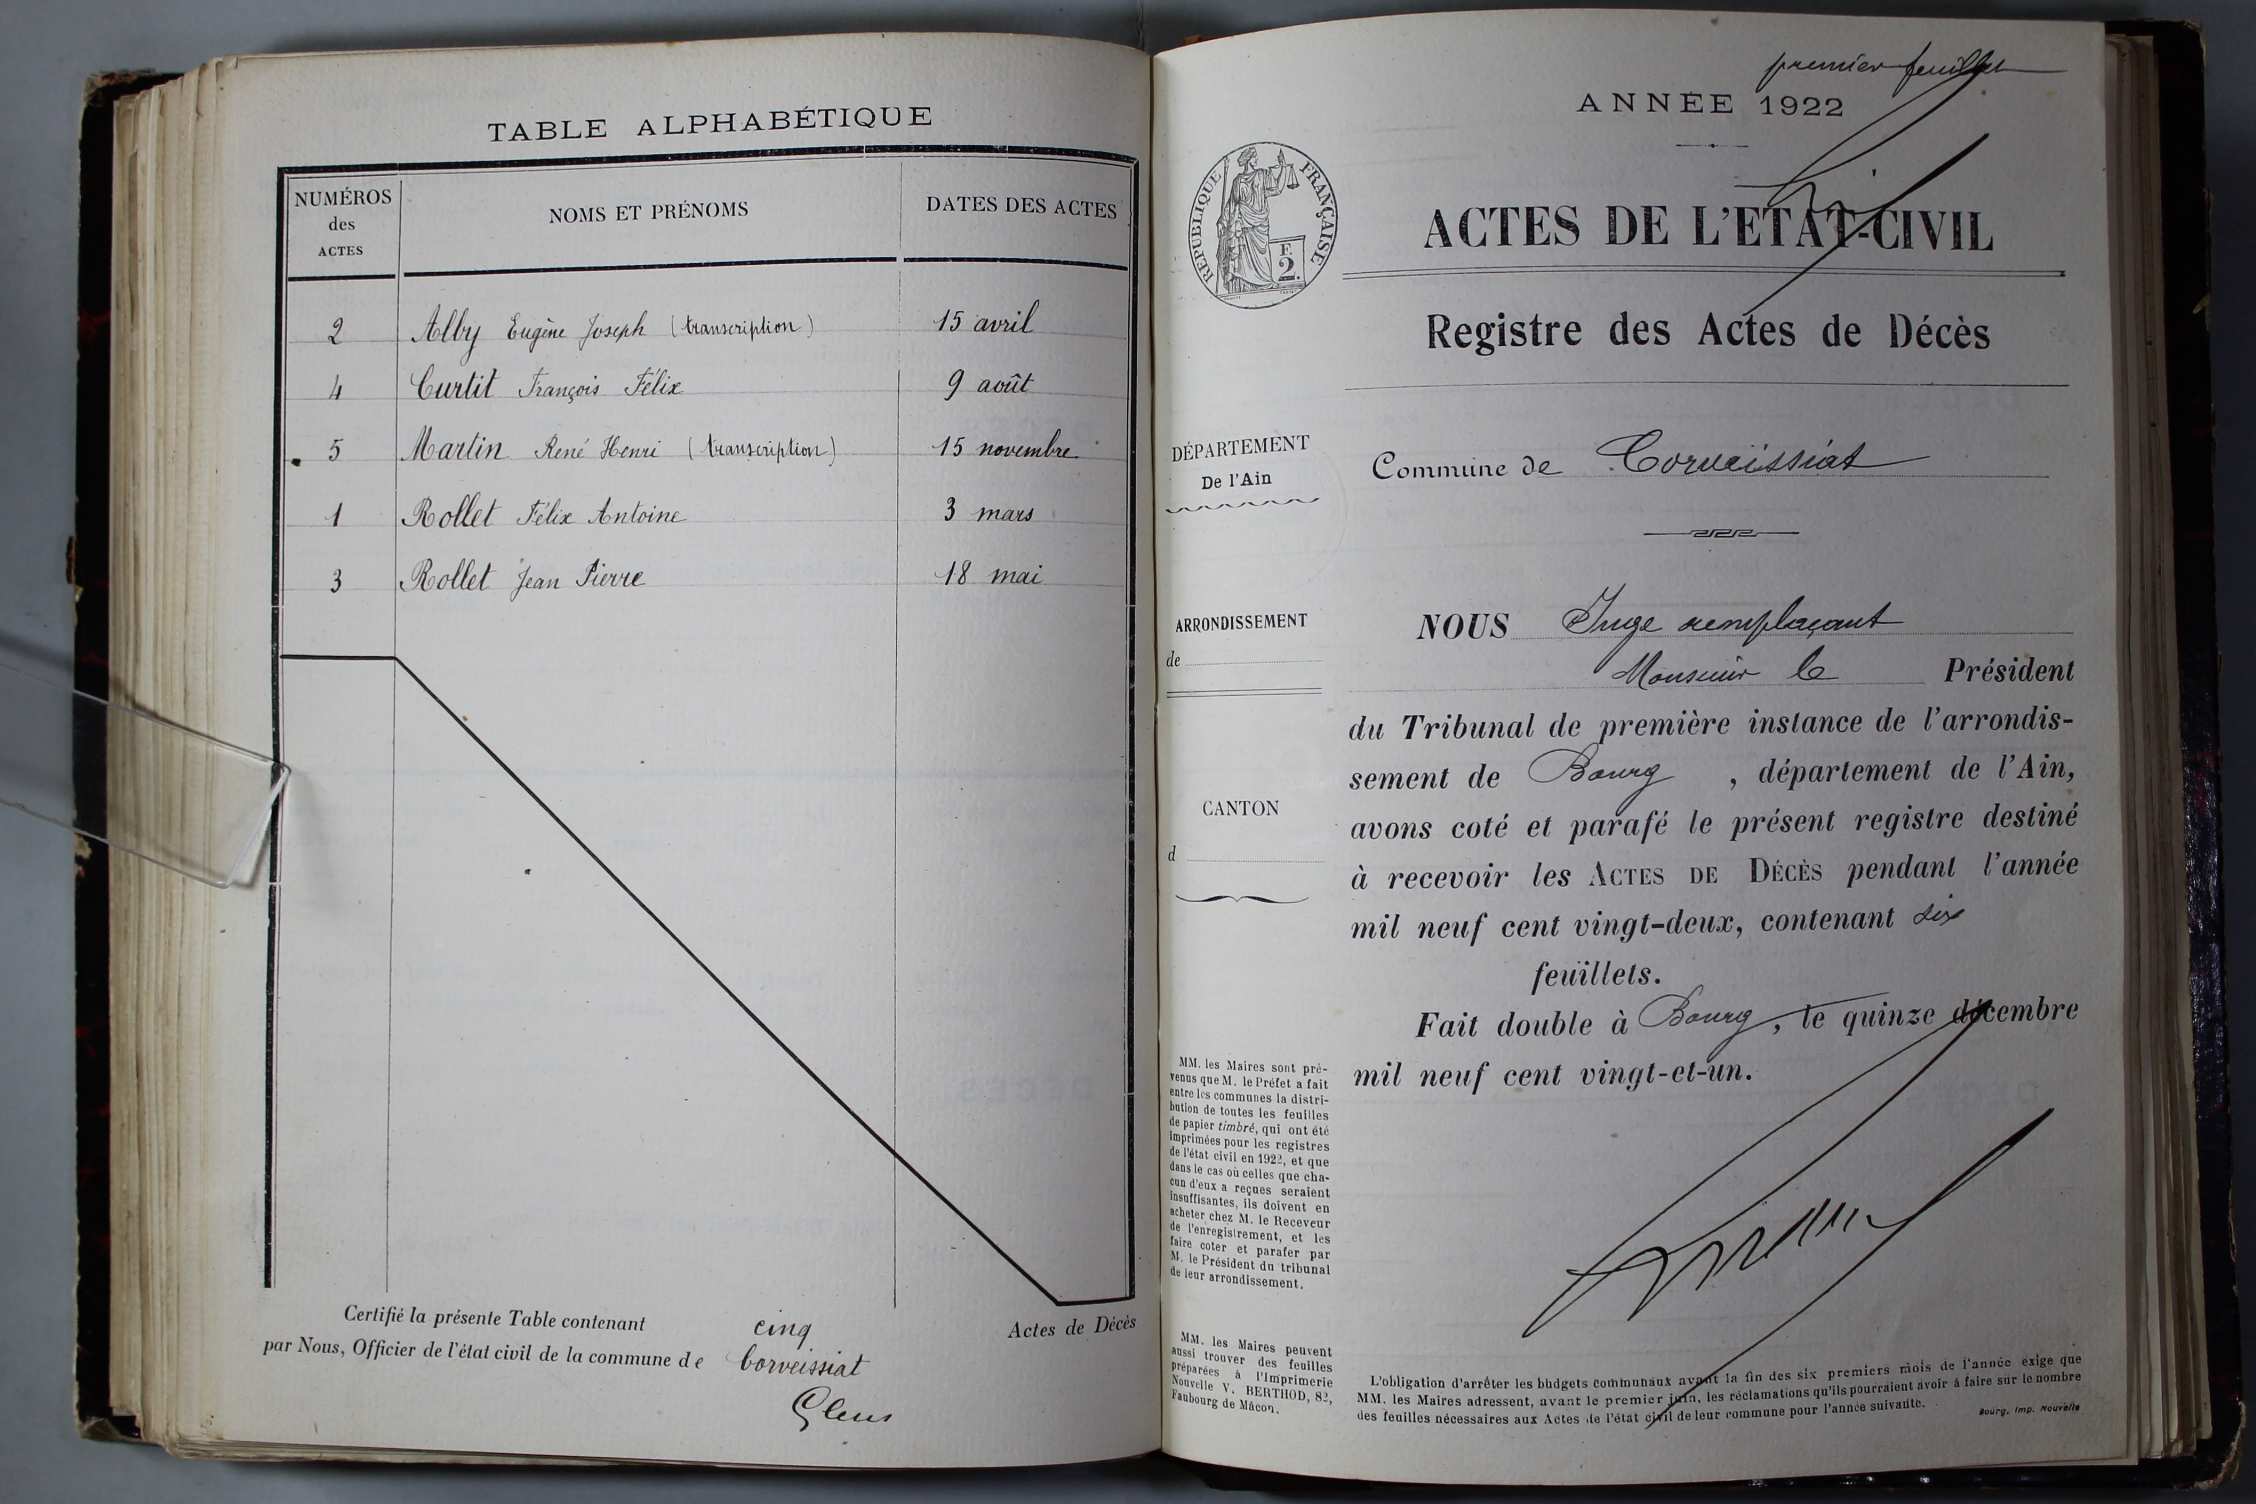 TABLE ALPHABÉTIQUE
NUMÉROS des ACTES
NOMS ET PRÉNOMS
DATES DES ACTES
2 Alby Eugène Joseph (transcription) 15 avril
4 Curtit François Félix 9 août
5 Martin René Henri (transcription) 15 novembre
1 Rollet Félix Antoine 3 mars
3 Rollet Jean Pierre 18 mai
Certifié la présente Table contenant cinq Actes de Décès
par Nous, Officier de l'état civil de la commune de Corveissiat
premier feuillet
ANNÉE 1922
RÉPUBLIQUE FRANÇAISE
F.
2.
ACTES DE L'ETAT-CIVIL
Registre des Actes de Décès
DÉPARTEMENT
De l'Ain
Commune de Corveissiat
ARRONDISSEMENT
de
CANTON
d
NOUS Juge remplaçant
Monsieur le Président
du Tribunal de première instance de l'arrondis-
sement de Bourg, département de l'Ain,
avons coté et parafé le présent registre destiné
à recevoir les ACTES DE DÉCÈS pendant l'année
mil neuf cent vingt-deux, contenant six
feuillets.
Fait double à Bourg, le quinze décembre
mil neuf cent vingt-et-un.
MM. les Maires sont pré-
venus que M. le Préfet a fait
entre les communes la distri-
bution de toutes les feuilles
de papier timbré, qui ont été
imprimées pour les registres
de l'état civil en 1922, et que
dans le cas où celles que cha-
cun d'eux a reçues seraient
insuffisantes, ils doivent en
acheter chez M. le Receveur
de l'enregistrement, et les
faire coter et parafer par
M. le Président du tribunal
de leur arrondissement.
MM. les Maires peuvent
aussi trouver des feuilles
préparées à l'Imprimerie
Nouvelle V. BERTHOD, 82,
Faubourg de Mâcon.
L'obligation d'arrêter les budgets communaux avant la fin des six premiers mois de l'année exige que
MM. les Maires adressent, avant le premier juin, les réclamations qu'ils pourraient avoir à faire sur le nombre
des feuilles nécessaires aux Actes de l'état civil de leur commune pour l'année suivante.
Bourg, Imp. Nouvelle